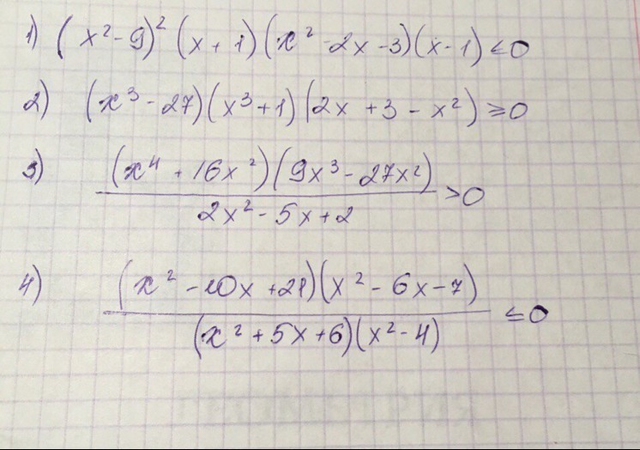 1) (x² - 9)² (x + 1) (x² - 2x - 3)(x - 1) ≤ 0
2) (x³ - 27)(x³ + 1)(2x + 3 - x²) ≥ 0
3) (x⁴ + 16x²)(9x³ - 27x²) / 2x² - 5x + 2 > 0
4) (x² - 10x + 21)(x² - 6x - 7) / (x² + 5x + 6)(x² - 4) ≤ 0